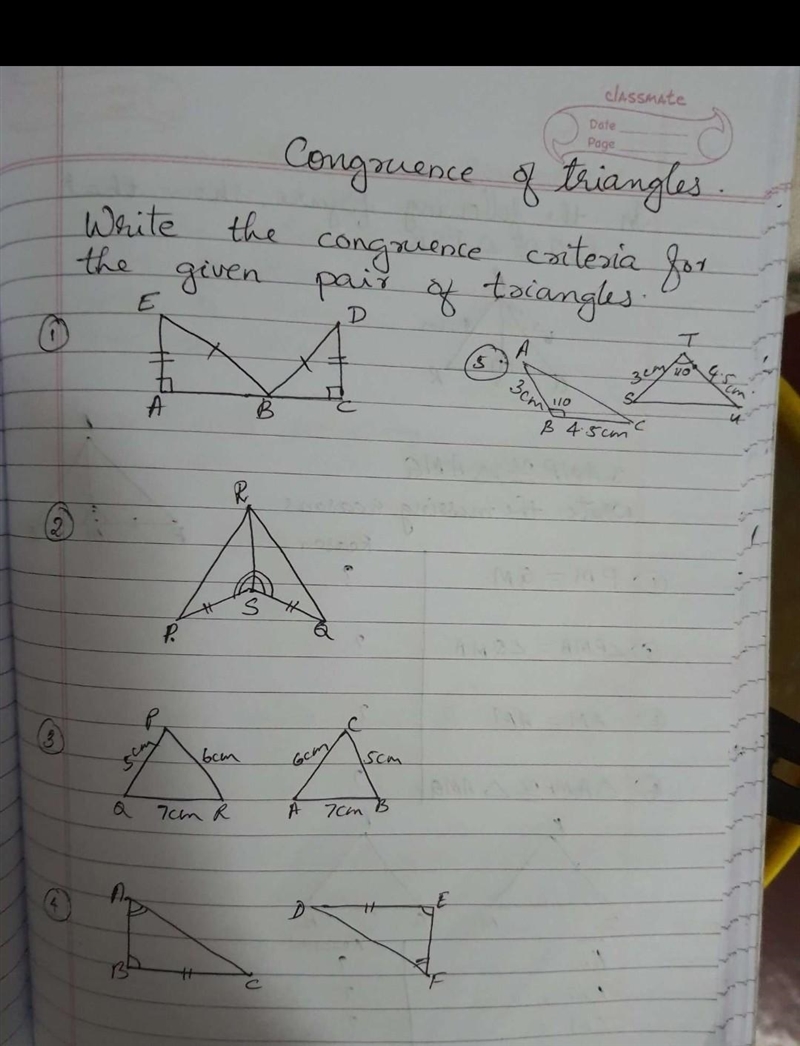 classmate
Date
Page
Congruence of triangles.
Write the congruence criteria for
the given pair of triangles.
1
E
D
A
B
C
5
A
3cm
110
B
4.5cm
C
T
3cm
110
4.5cm
S
U
2
R
S
P
Q
3
P
5cm
6cm
Q
7cm
R
C
6cm
5cm
A
7cm
B
4
A
B
C
D
E
F